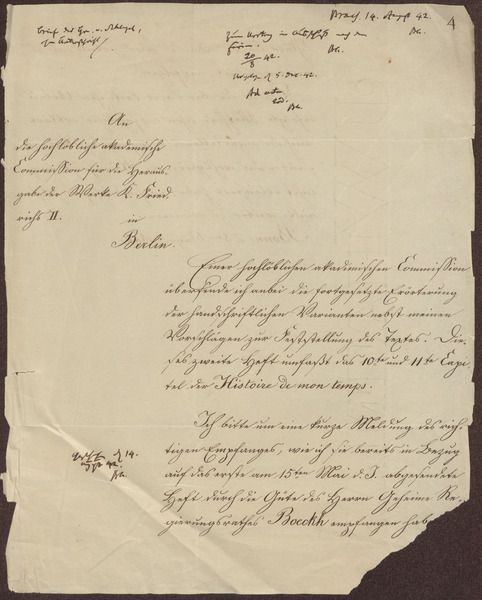 Praes. 14. August 42.
Bh.
4
Brief des Hn. v. Schlegel,
zum Vortrag in
20/8 42.
5. Dec. 42.
Ad acta
Bh.
An
die hochlöbliche akademische
Commission für die Heraus-
gabe der Werke K. Fried-
richs II.
in
Berlin.
Einer hochlöblichen akademischen Commission
übersende ich anbei die fortgesetzte Erörterung
der handschriftlichen Varianten nebst meinen
Vorschlägen zur Feststellung des Textes. Die-
ses zweite Heft umfaßt das 10te und 11te Capi-
tel der Histoire de mon temps.
Ich bitte um eine kurze Meldung des rich-
tigen Empfanges, wie ich sie bereits in Bezug
auf das erste am 15ten Mai d. J. abgesendete
Heft durch die Güte des Herrn Geheime Re-
gierungsrathes Boeckh empfangen hab
14.
42.
Bh.